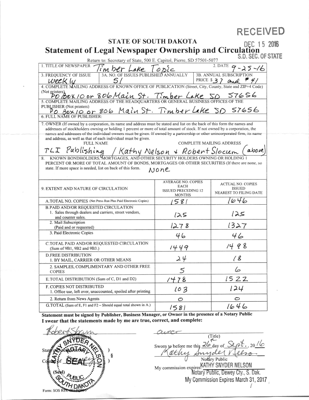 RECEIVED
DEC 15 2016
S.D. SEC. OF STATE
STATE OF SOUTH DAKOTA
Statement of Legal Newspaper Ownership and Circulation
Return to: Secretary of State, 500 E. Capitol, Pierre, SD 57501-5077
1. TITLE OF NEWSPAPER
Timber Lake Topic
2. DATE 9-25-16
3. FREQUENCY OF ISSUE
weekly
3A. NO. OF ISSUES PUBLISHED ANNUALLY
51
3B. ANNUAL SUBSCRIPTION
PRICE $37 and $41
4. COMPLETE MAILING ADDRESS OF KNOWN OFFICE OF PUBLICATION (Street, City, County, State and ZIP+4 Code)
(Not printers)
PO Box 10 or 806 Main St. Timber Lake SD 57656
5. COMPLETE MAILING ADDRESS OF THE HEADQUARTERS OR GENERAL BUSINESS OFFICES OF THE
PUBLISHER (Not printers)
PO Box 10 or 806 Main St. Timber Lake SD 57656
6. FULL NAME OF PUBLISHER:
7. OWNER (If owned by a corporation, its name and address must be stated and also
FULL NAME
COMPLETE MAILING ADDRESS
TLI Publishing / Kathy Nelson & Robert Slocum (above)
8. KNOWN BONDHOLDERS, MORTGAGES, AND OTHER SECURITY HOLDERS OWNING OR HOLDING 1
PERCENT OR MORE OF TOTAL AMOUNT OF BONDS, MORTGAGES OR OTHER SECURITIES (If there are none, so
state. If more space is needed, list on back of this form.
None
9. EXTENT AND NATURE OF CIRCULATION
AVERAGE NO. COPIES
EACH
ISSUED PRECEDING 12
MONTHS
ACTUAL NO. COPIES
ISSUED
NEAREST TO FILING DATE
A. TOTAL NO. COPIES
1581
1646
B. PAID AND/OR REQUESTED CIRCULATION
1. Sales through dealers and carriers, street vendors,
and counter sales.
125
125
2. Mail Subscription
(Paid and or requested)
1278
1327
3. Paid Electronic Copies
46
46
C. TOTAL PAID AND/OR REQUESTED CIRCULATION
(Sum of 9B1, 9B2 and 9B3)
1449
1498
D. FREE DISTRIBUTION
1. BY MAIL, CARRIER OR OTHER MEANS
24
18
2. SAMPLES, COMPLIMENTARY AND OTHER FREE
COPIES
5
6
E. TOTAL DISTRIBUTION (Sum of C, D1 and D2)
1478
1522
F. COPIES NOT DISTRIBUTED
1. Office use, left over, unaccounted, spoiled after printing
103
124
2. Return from News Agents
0
0
G. TOTAL
1581
1646
Statement must be signed by Publisher, Business Manager, or Owner in the presence of a Notary Public
I swear that the statements made by me are true, correct, and complete:
owner
(Title)
Sworn to before me this 26 day of Sept. 2016
Kathy Snyder Nelson
Notary Public
KATHY SNYDER NELSON
NOTARY
SEAL
PUBLIC
SOUTH DAKOTA
(Seal)
My commission expires KATHY SNYDER NELSON
Notary Public, Dewey Cty., S. Dak.
My Commission Expires March 31, 2017